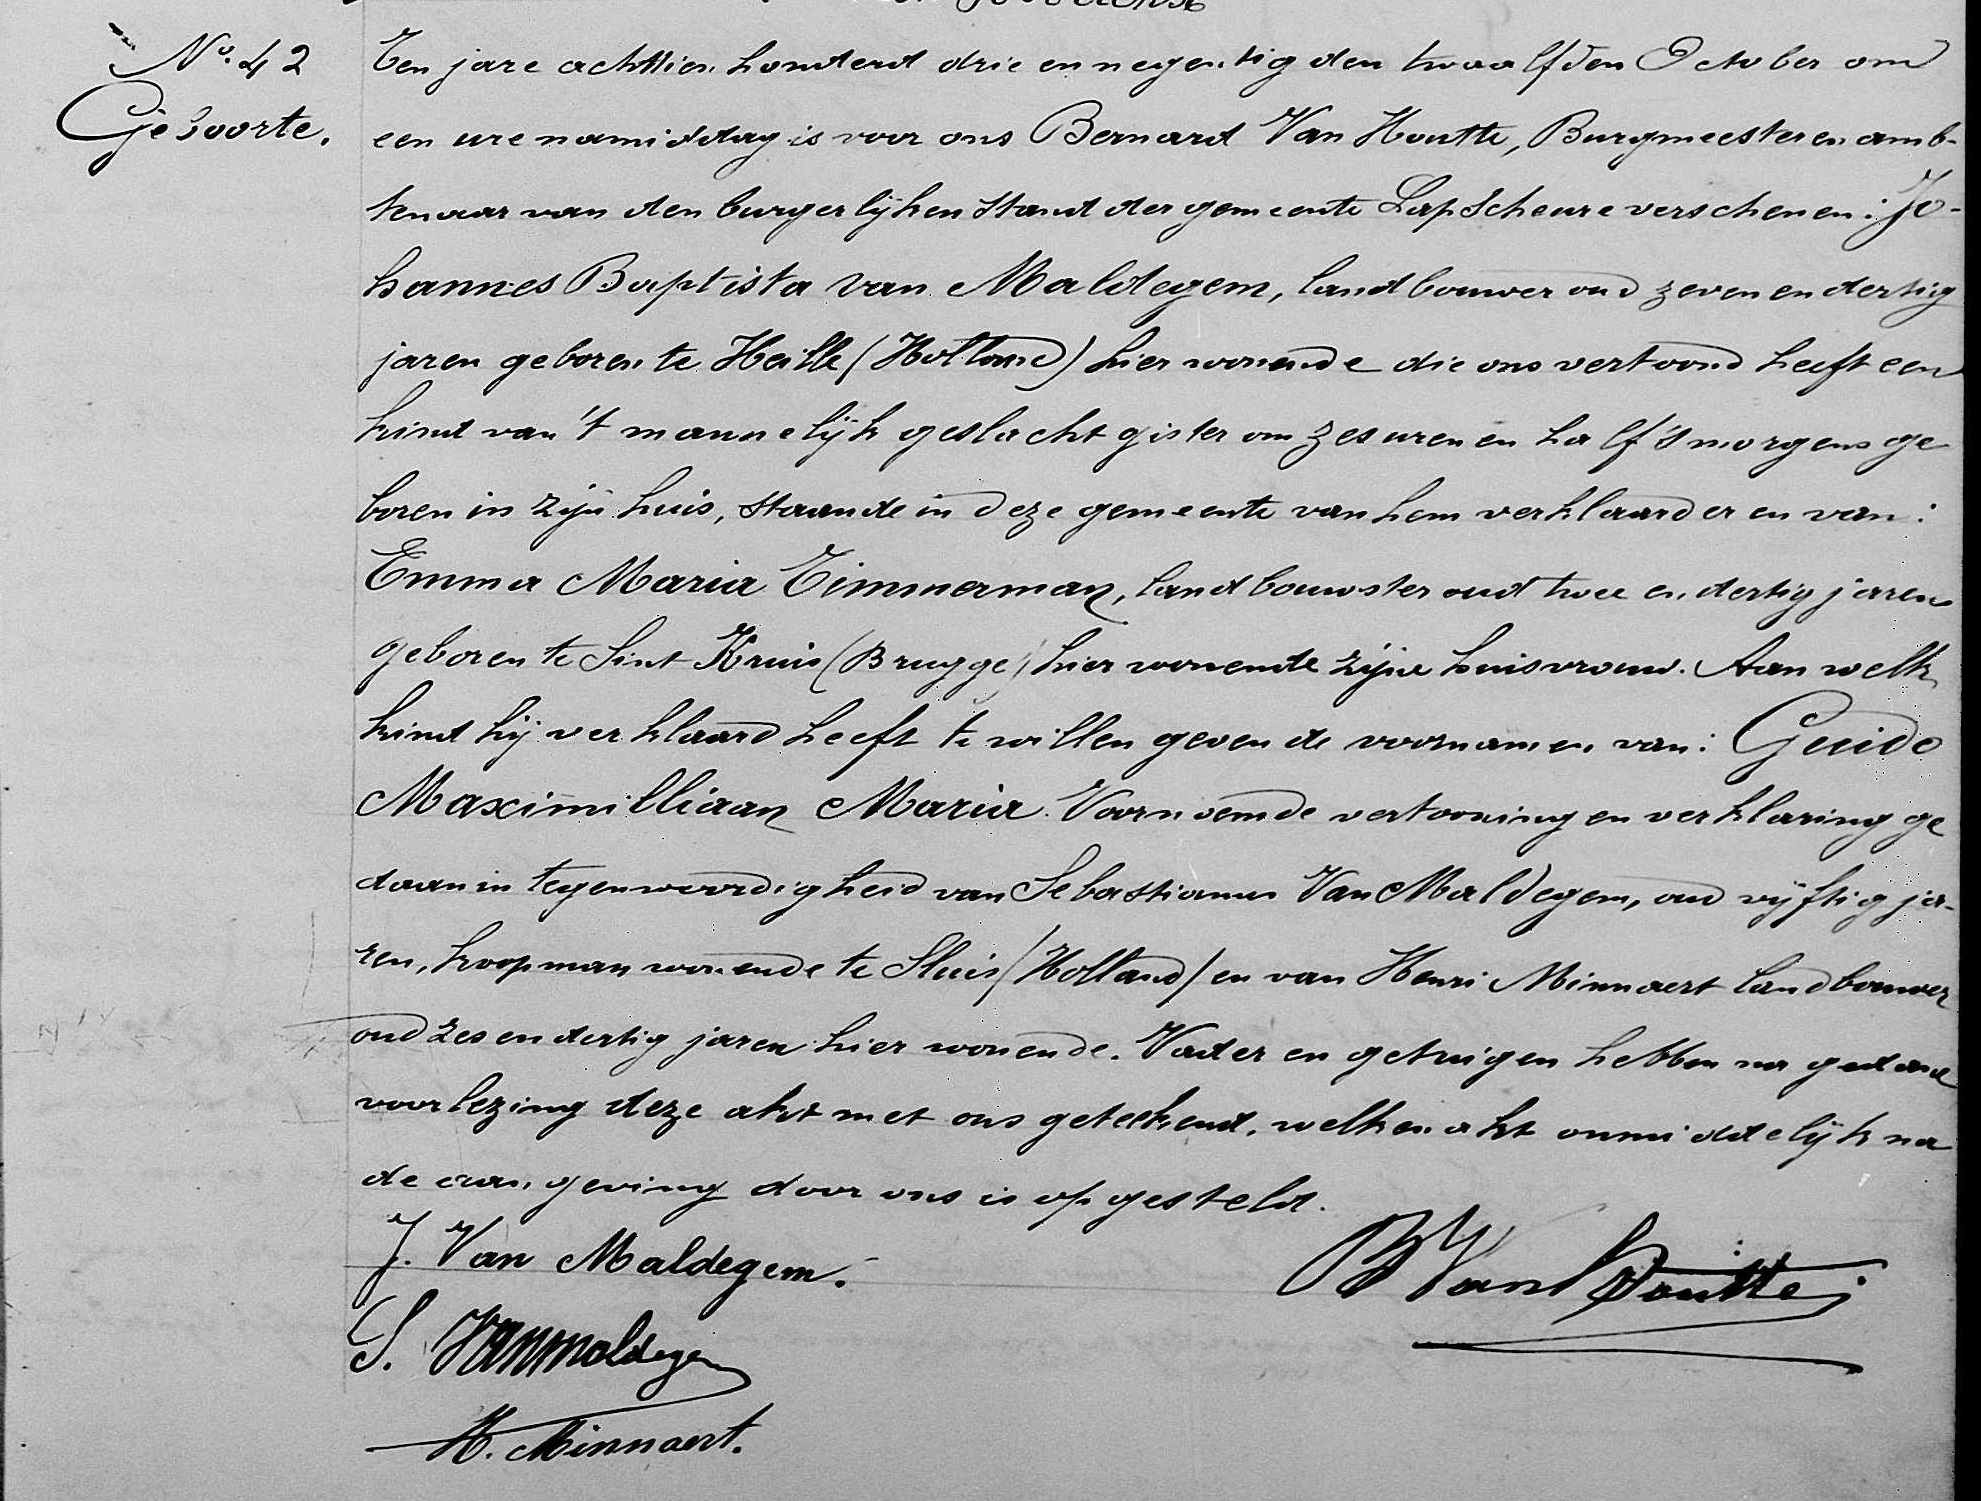 No. 42
Geboorte.
Ten jare achttien honderd drie en negentig den twaalfden October om
een ure namiddag is voor ons Bernard Van Houtte, Burgmeester en amb-
tenaar van den burgerlijken stand der gemeente Lapscheure verschenen: Jo-
hannes Baptista Van Maldegem, landbouwer oud zeven en dertig
jaren geboren te Heille (Holland) hier wonende die ons vertoond heeft een
kind van 't mannelijk geslacht gister om zes uren en half 's morgens ge
boren in zijn huis, staande in deze gemeente van hem verklaarder en van:
Emma Maria Timmerman, landbouwster oud twee en dertig jaren
geboren te Sint Kruis (Brugge) hier wonende zijne huisvrouw. Aan welk
kind hij verklaard heeft te willen geven de voornamen van: Guido
Maximilliaan Maria. Voornoemde vertooning en verklaring ge
daan in tegenwoordigheid van Sebastianus Van Maldegem, oud vijftig ja-
ren, koopman wonende te Sluis (Holland) en van Henri Minnaert landbouwer
oud zes en dertig jaren hier wonende. Vader en getuigen hebben na gedane
voorlezing deze akt met ons geteekend, welken akt onmiddelijk na
de aangeving door ons is opgesteld.
J. Van Maldegem.
B Van Houtte
S. Vanmaldegem
H. Minnaert.